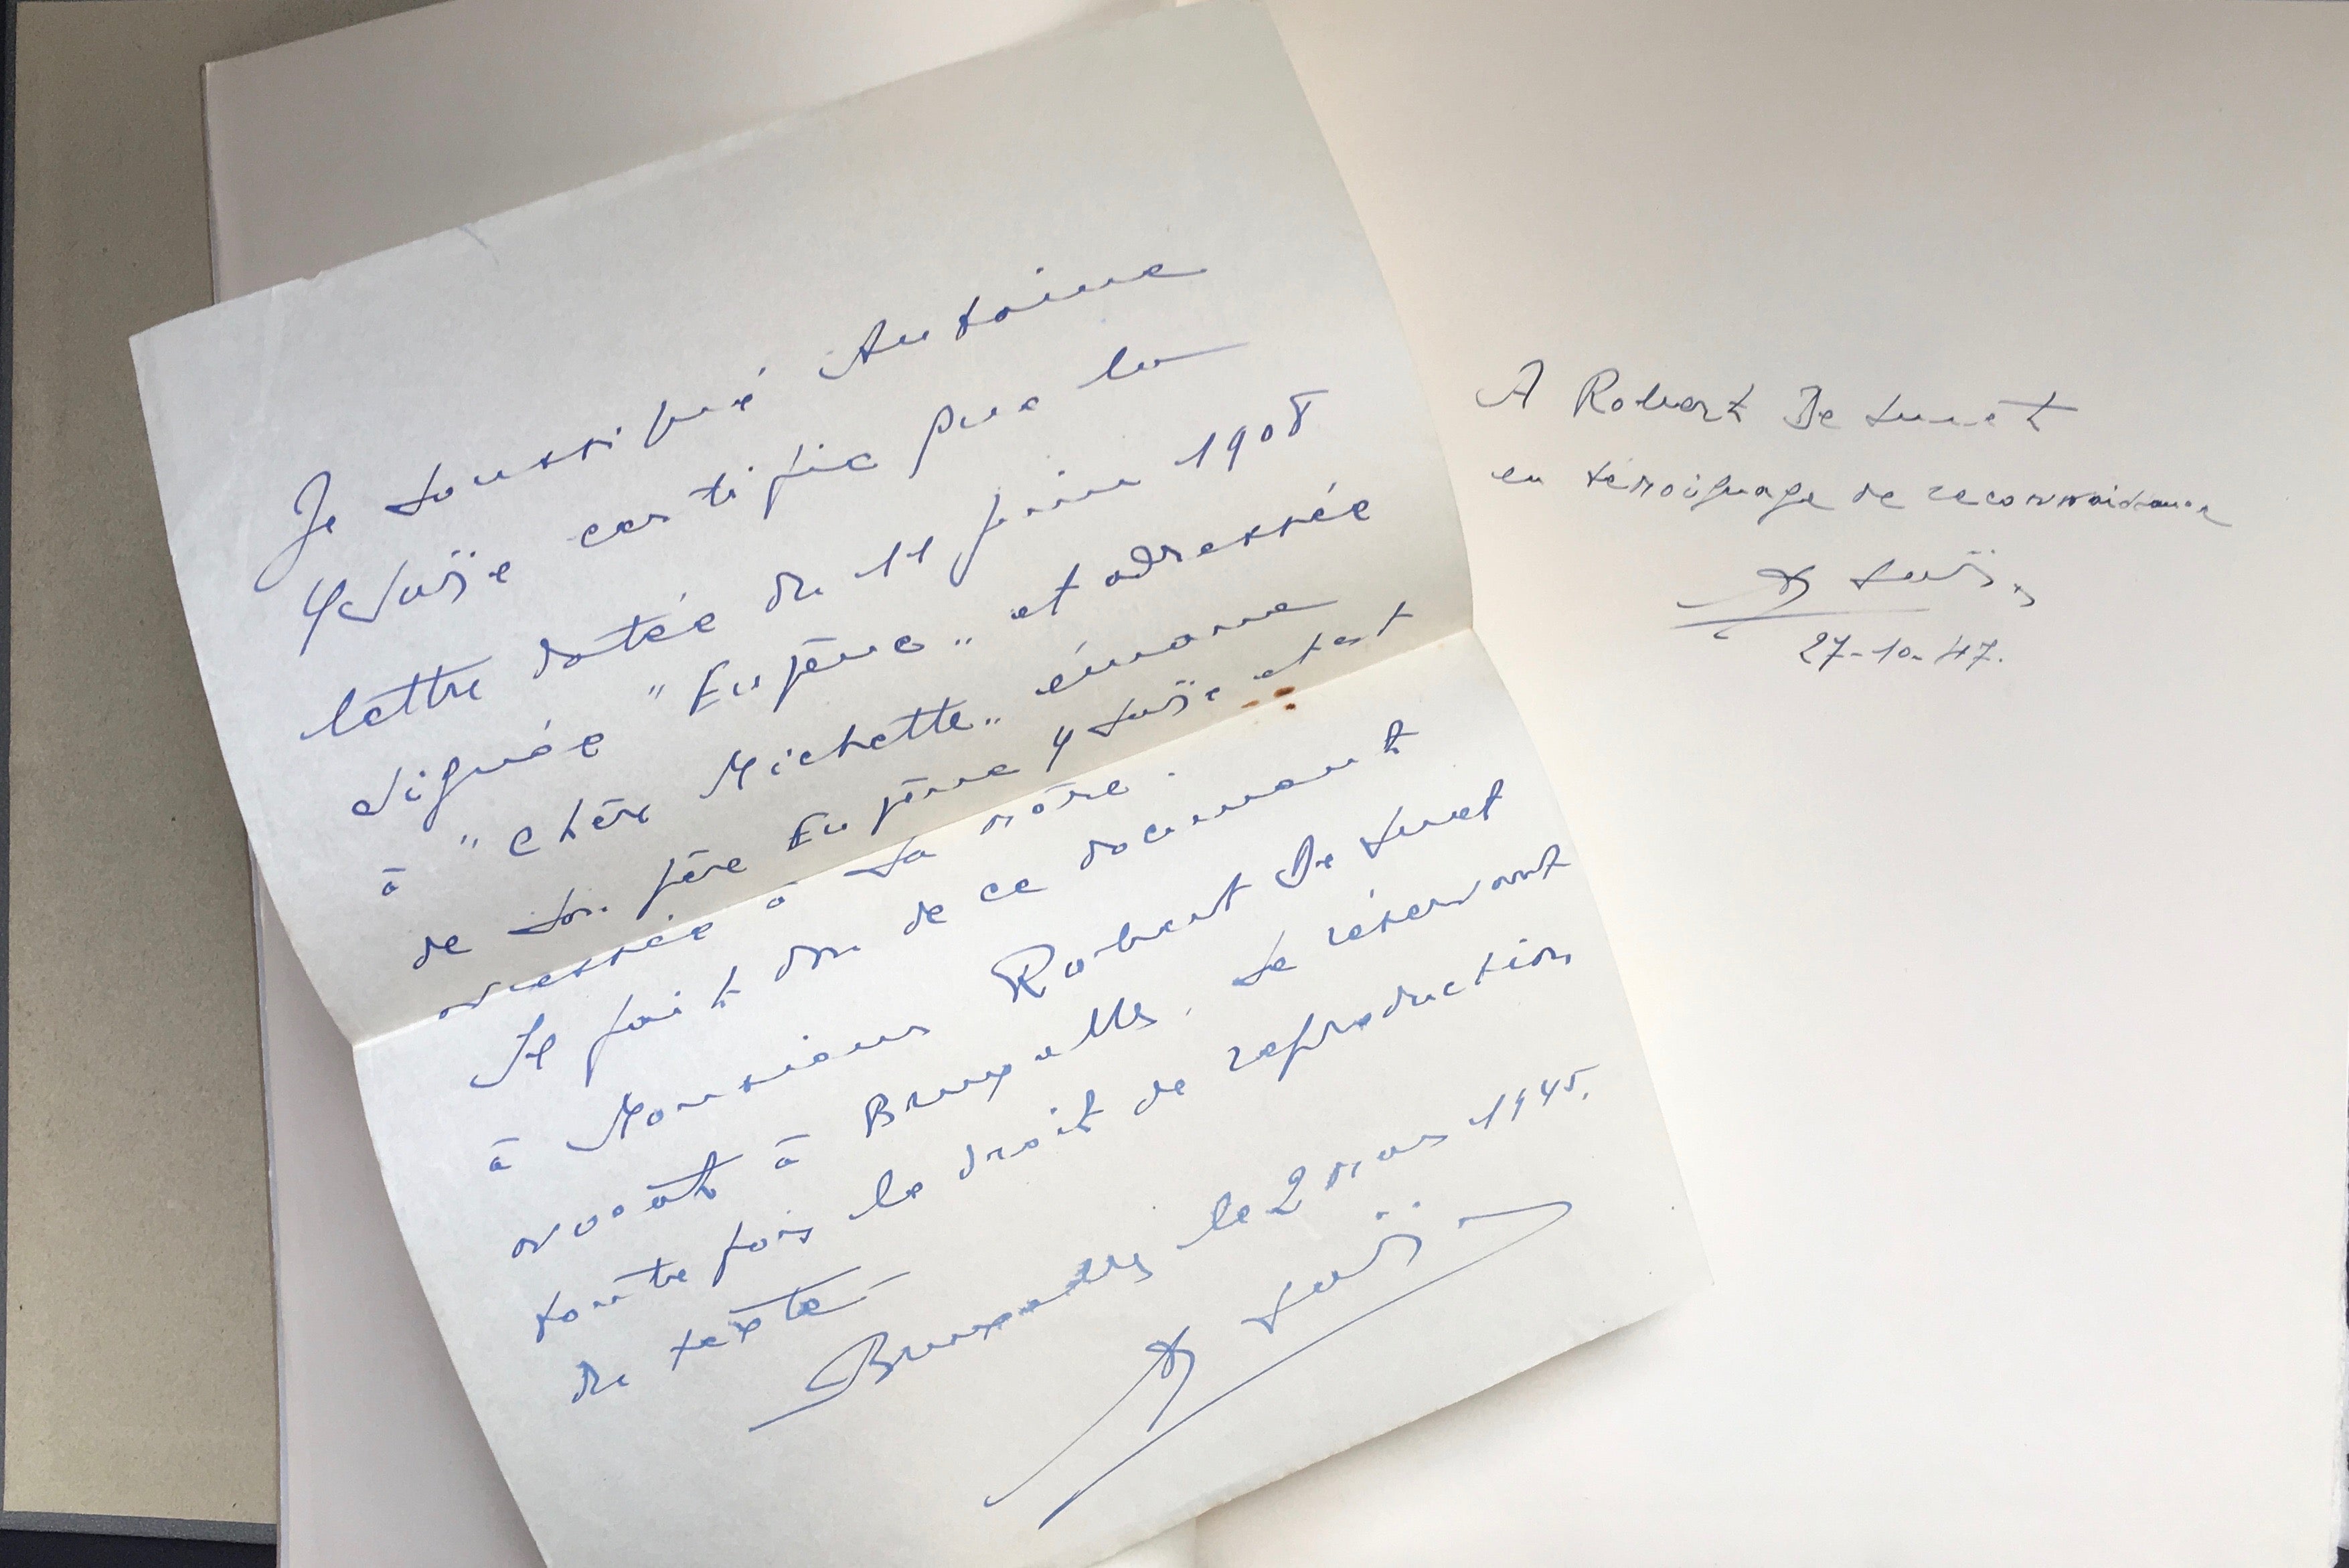 Je soussigné Antoine
Ysaÿe certifie que la
lettre datée du 11 juin 1908
signée "Eugène" et adressée
à "chère Michette" émane
de son père Eugène Ysaÿe et est
adressée à sa mère.
Il fait don de ce document
à Monsieur Robert De Smet
avocat à Bruxelles, se réservant
toute fois le droit de reproduction
du texte
Bruxelles le 2 mars 1945.
A Ysaÿe
A Robert De Smet
en témoignage de reconnaissance
A Ysaÿe
27-10-47.